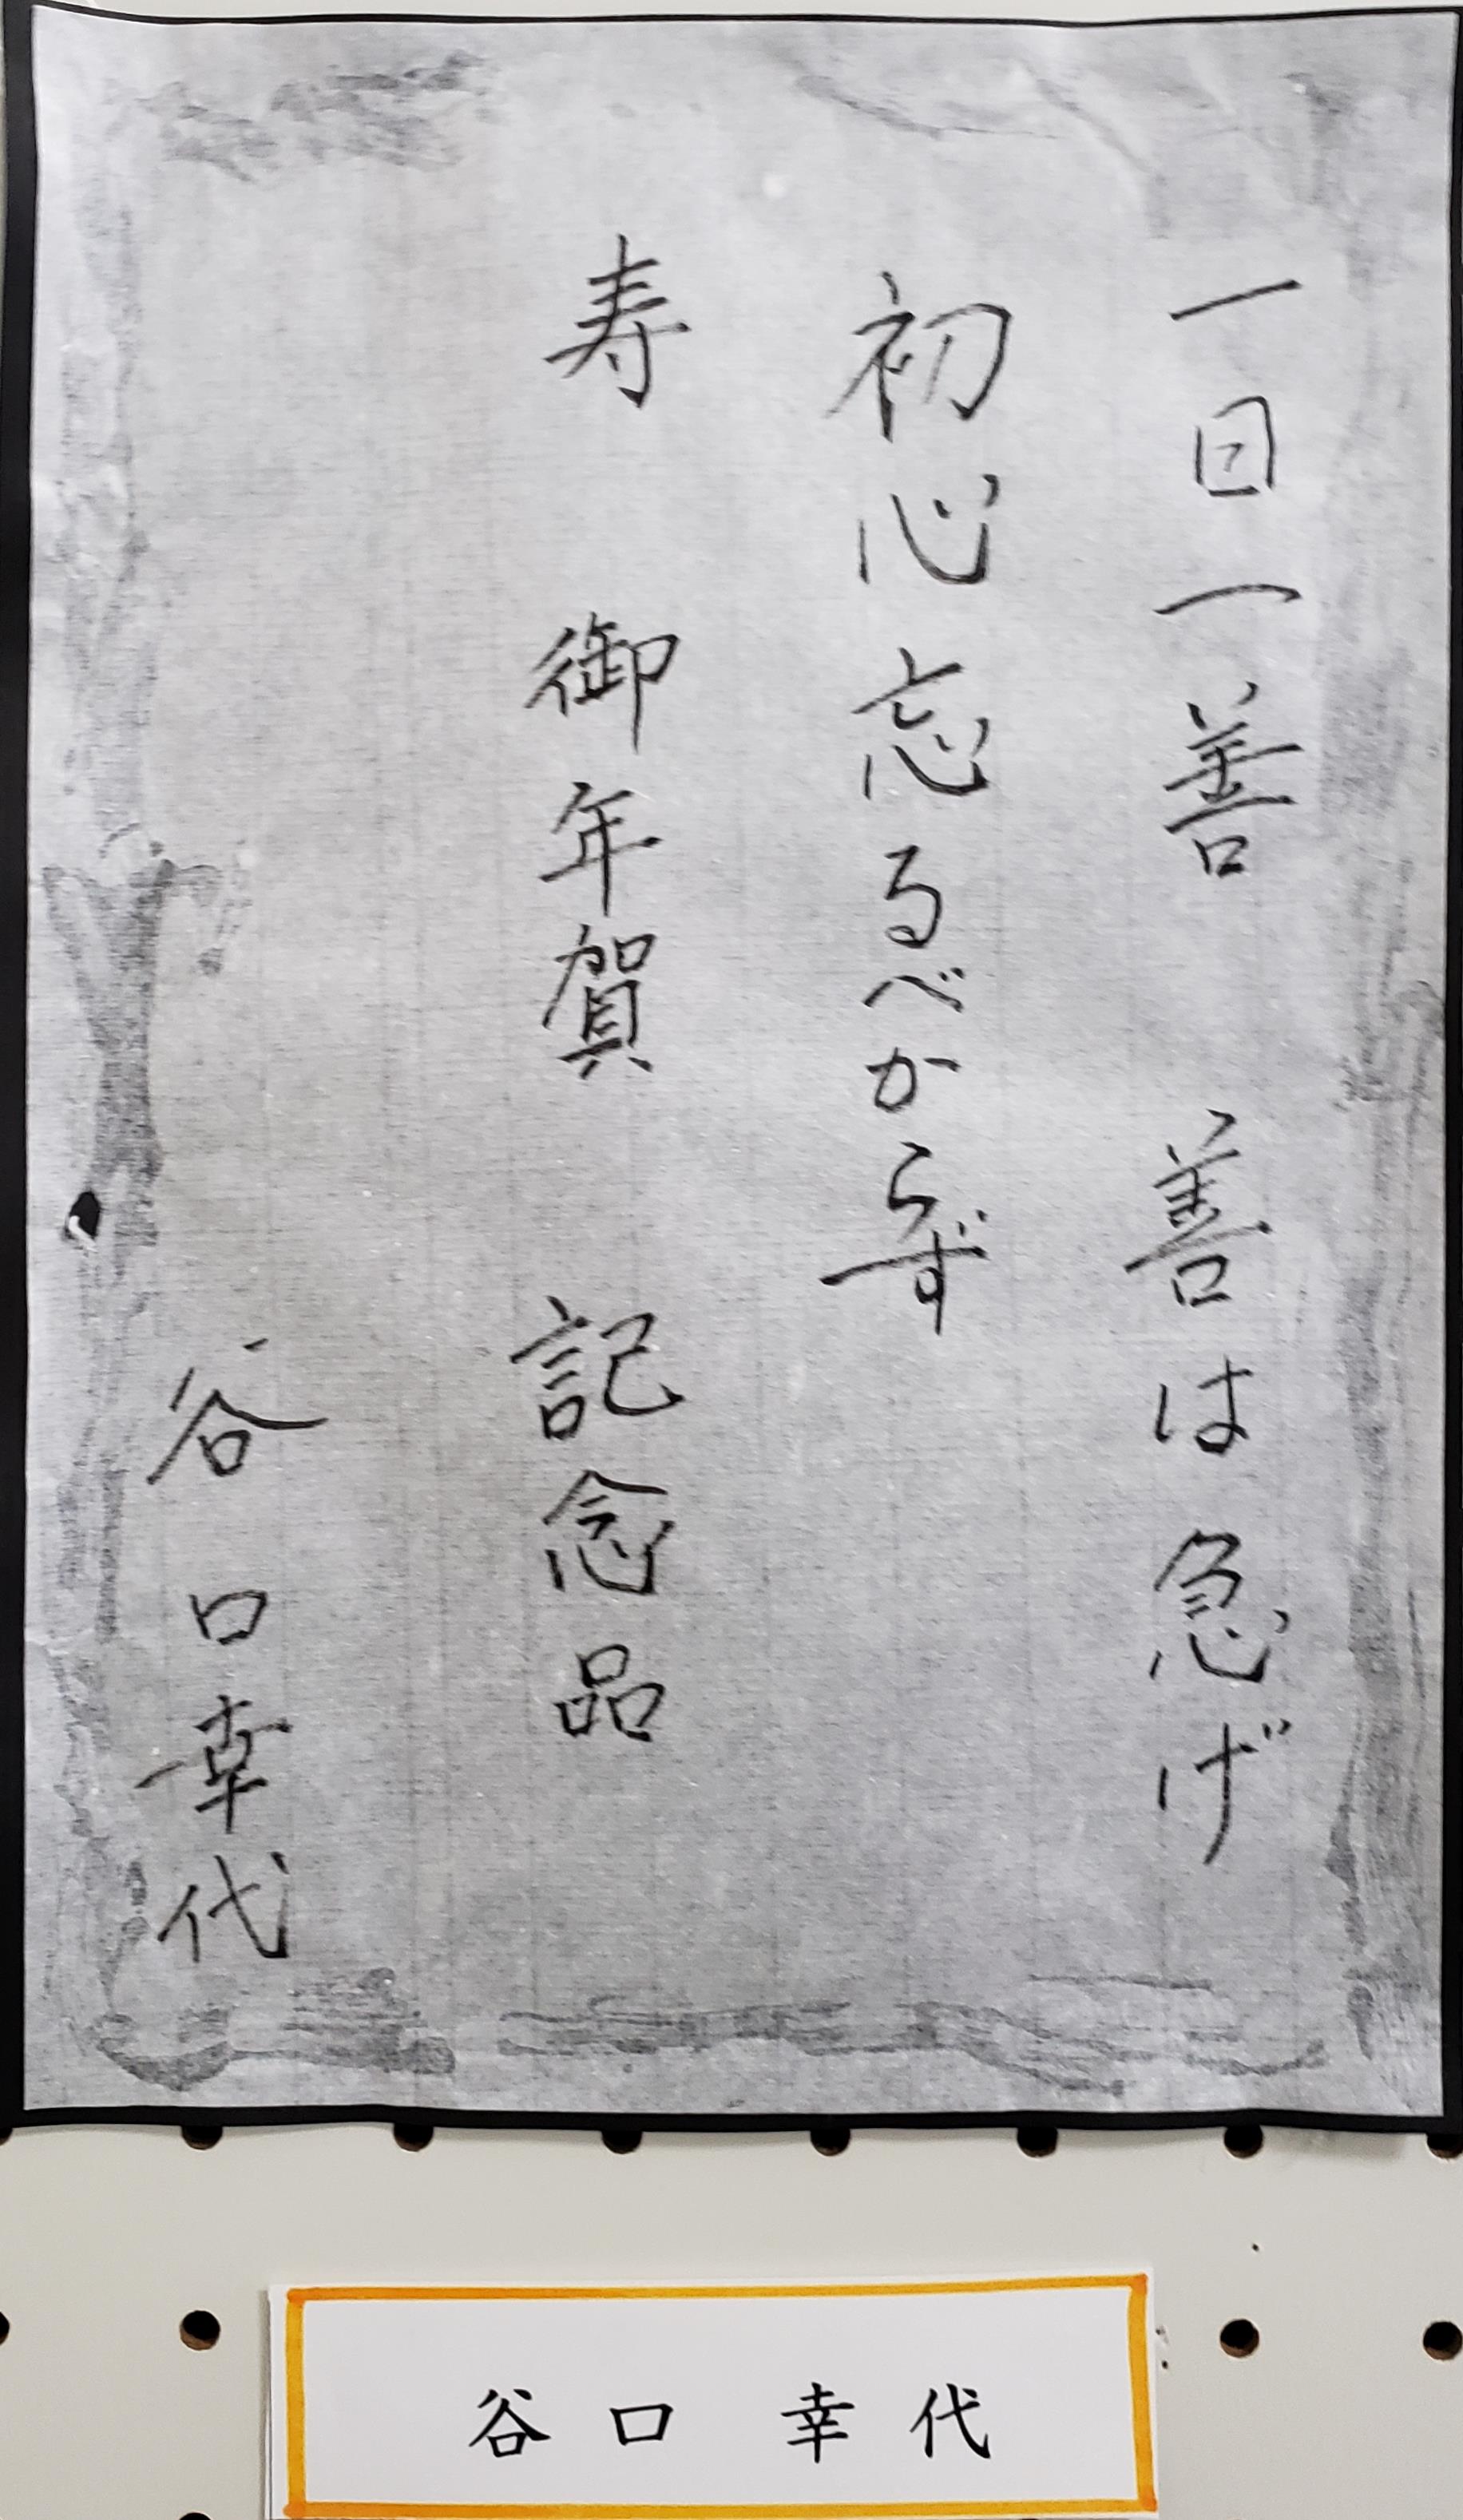 一日一善　善は急げ
初心忘るべからず
寿　御年賀　記念品
谷口幸代
谷口　幸代